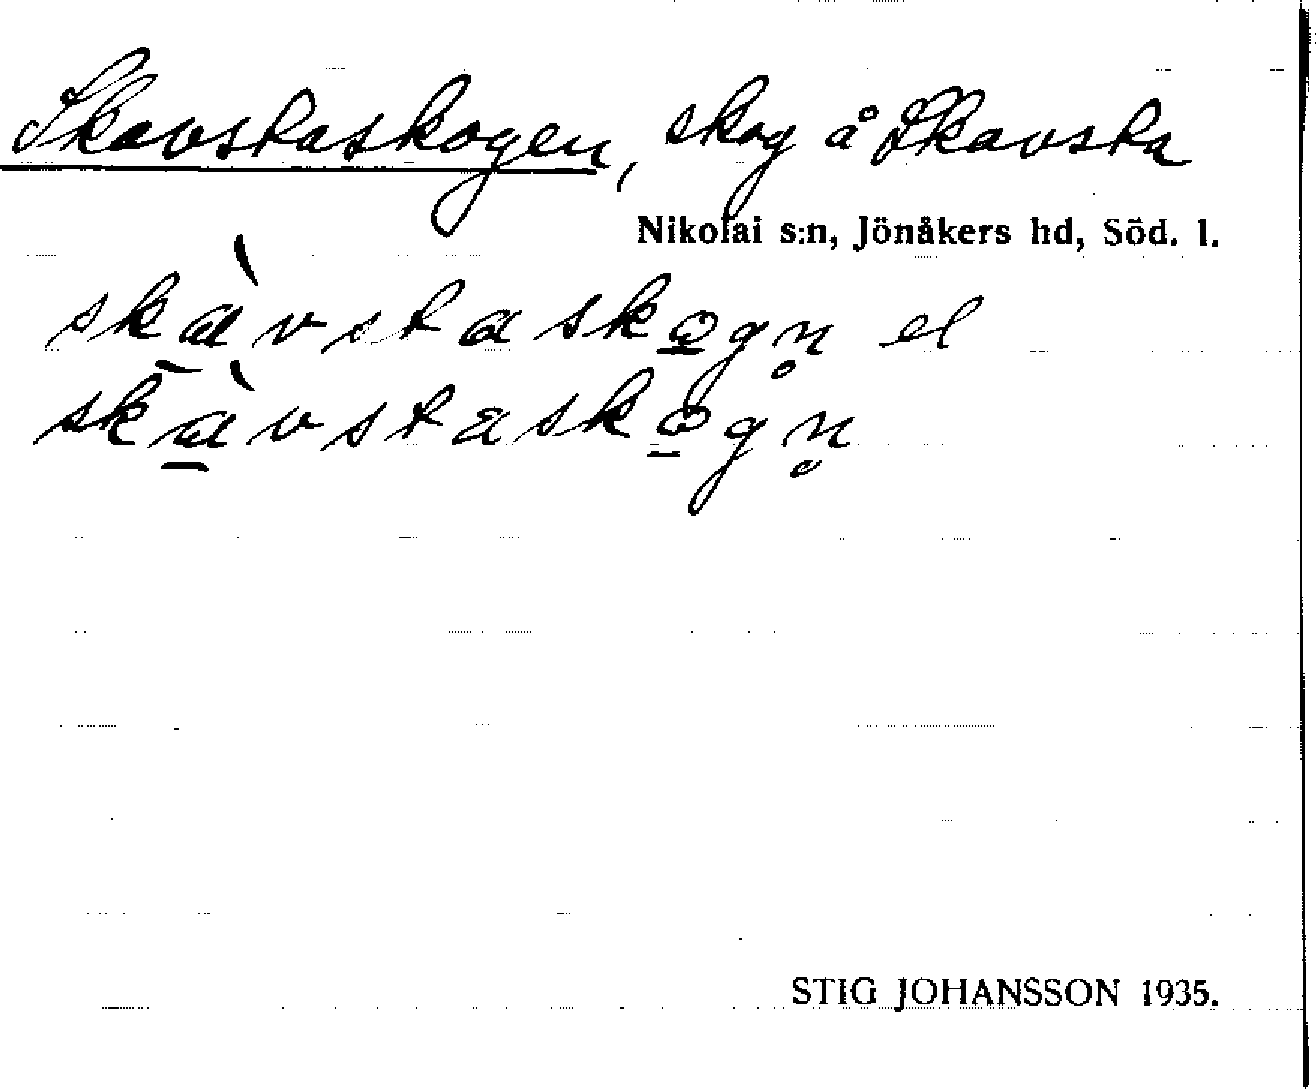 Skavstaskogen, skog å Skavsta
Nikolai s:n, Jönåkers hd, Söd. l.
skà̱vstasko̱gn̥ el
skà̱vstasko̱gn̥
STIG JOHANSSON 1935.